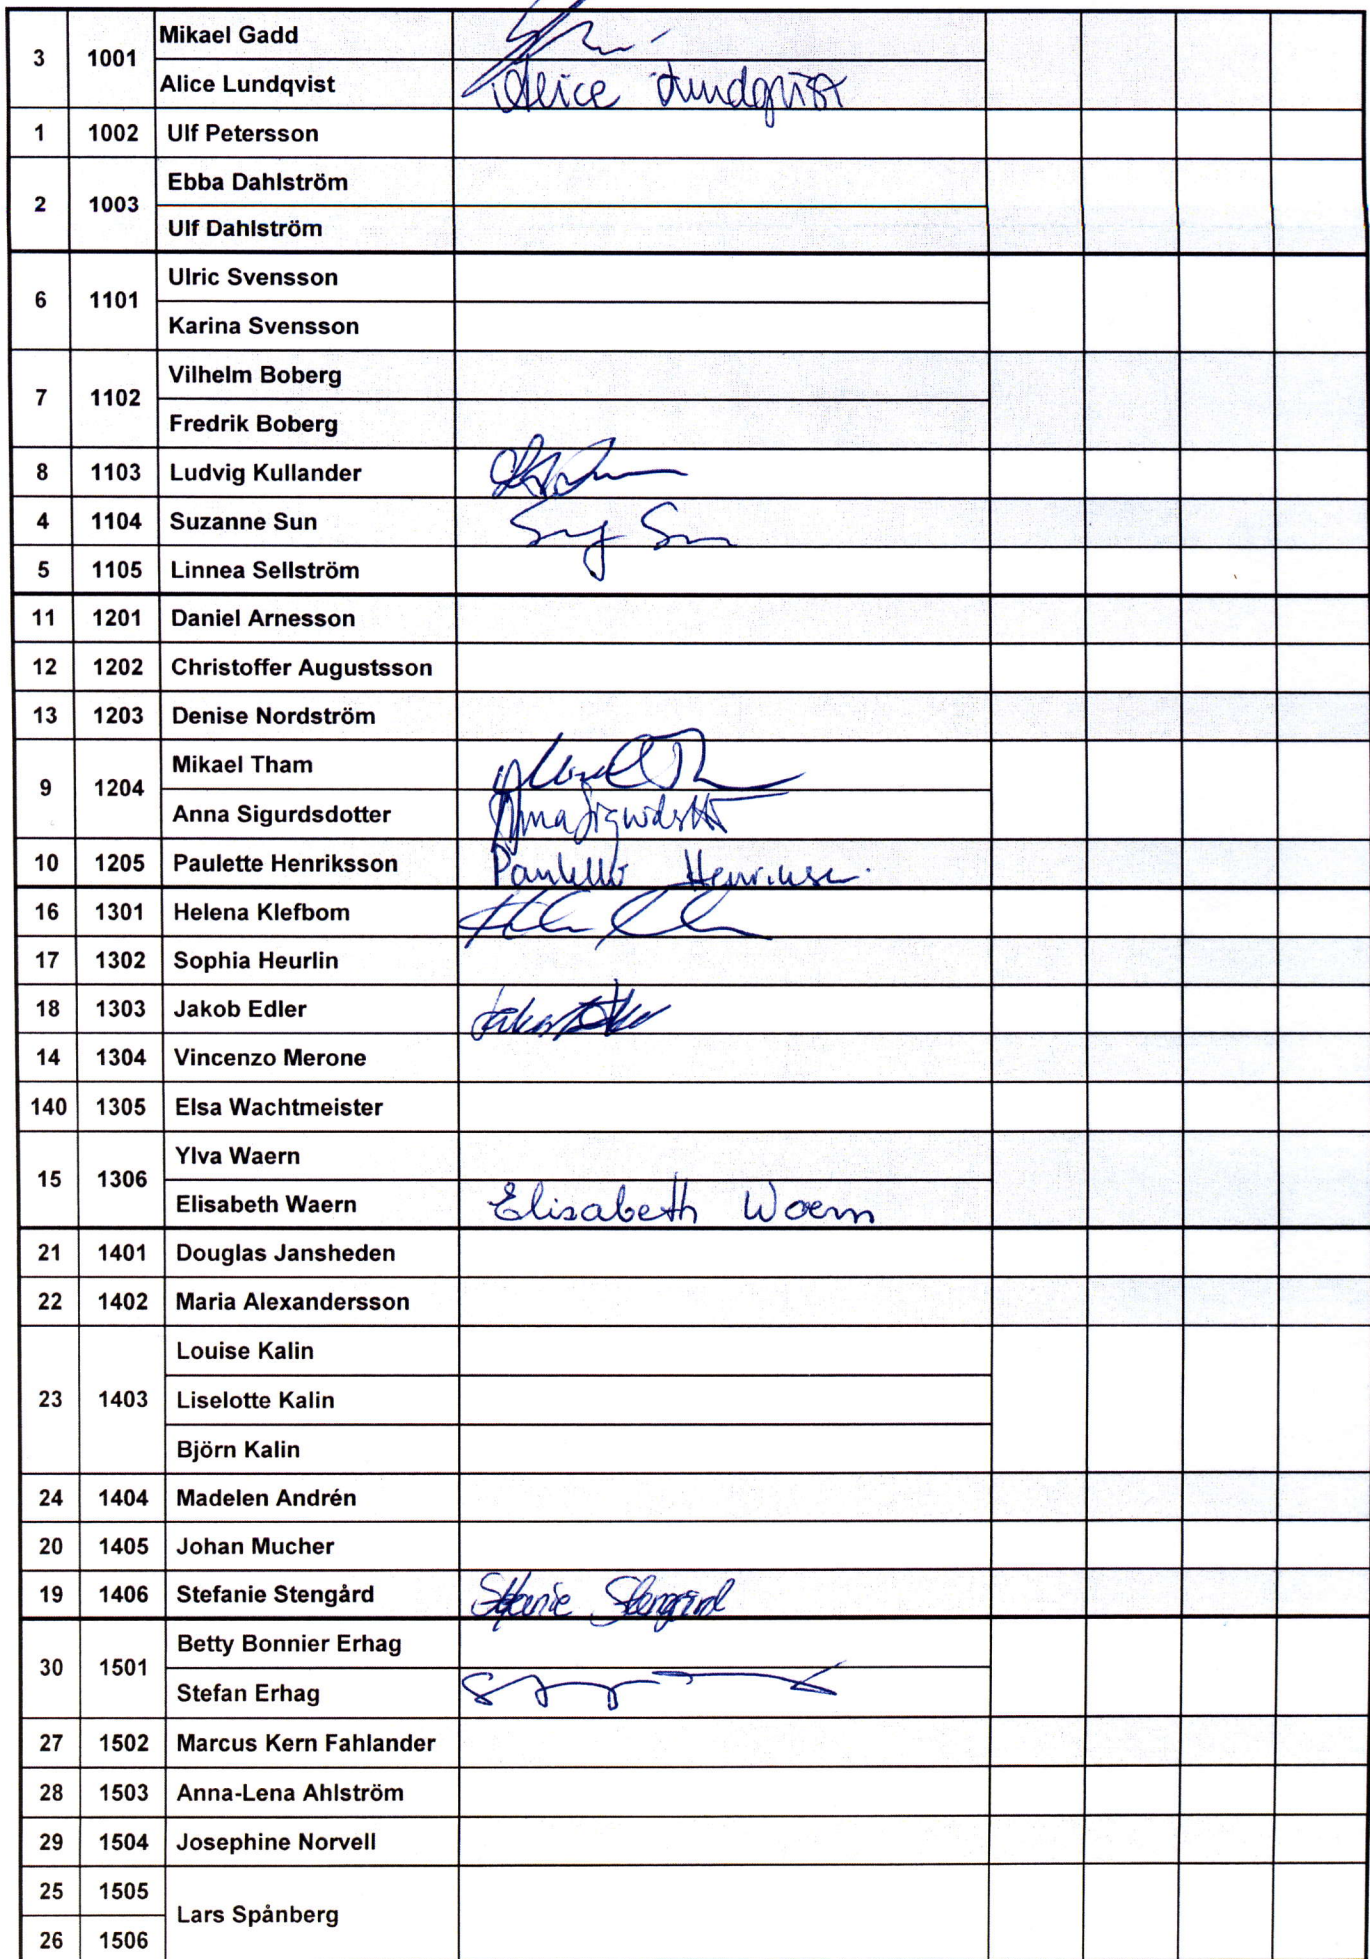 3 1001 Mikael Gadd
Alice Lundqvist Alice Lundqvist
1 1002 Ulf Petersson
2 1003 Ebba Dahlström
Ulf Dahlström
6 1101 Ulric Svensson
Karina Svensson
7 1102 Vilhelm Boberg
Fredrik Boberg
8 1103 Ludvig Kullander
4 1104 Suzanne Sun
5 1105 Linnea Sellström
11 1201 Daniel Arnesson
12 1202 Christoffer Augustsson
13 1203 Denise Nordström
9 1204 Mikael Tham
Anna Sigurdsdotter
10 1205 Paulette Henriksson
16 1301 Helena Klefbom
17 1302 Sophia Heurlin
18 1303 Jakob Edler
14 1304 Vincenzo Merone
140 1305 Elsa Wachtmeister
15 1306 Ylva Waern
Elisabeth Waern Elisabeth Waern
21 1401 Douglas Jansheden
22 1402 Maria Alexandersson
23 1403 Louise Kalin
Liselotte Kalin
Björn Kalin
24 1404 Madelen Andrén
20 1405 Johan Mucher
19 1406 Stefanie Stengård Stefanie Stengård
30 1501 Betty Bonnier Erhag
Stefan Erhag
27 1502 Marcus Kern Fahlander
28 1503 Anna-Lena Ahlström
29 1504 Josephine Norvell
25 1505 Lars Spånberg
26 1506